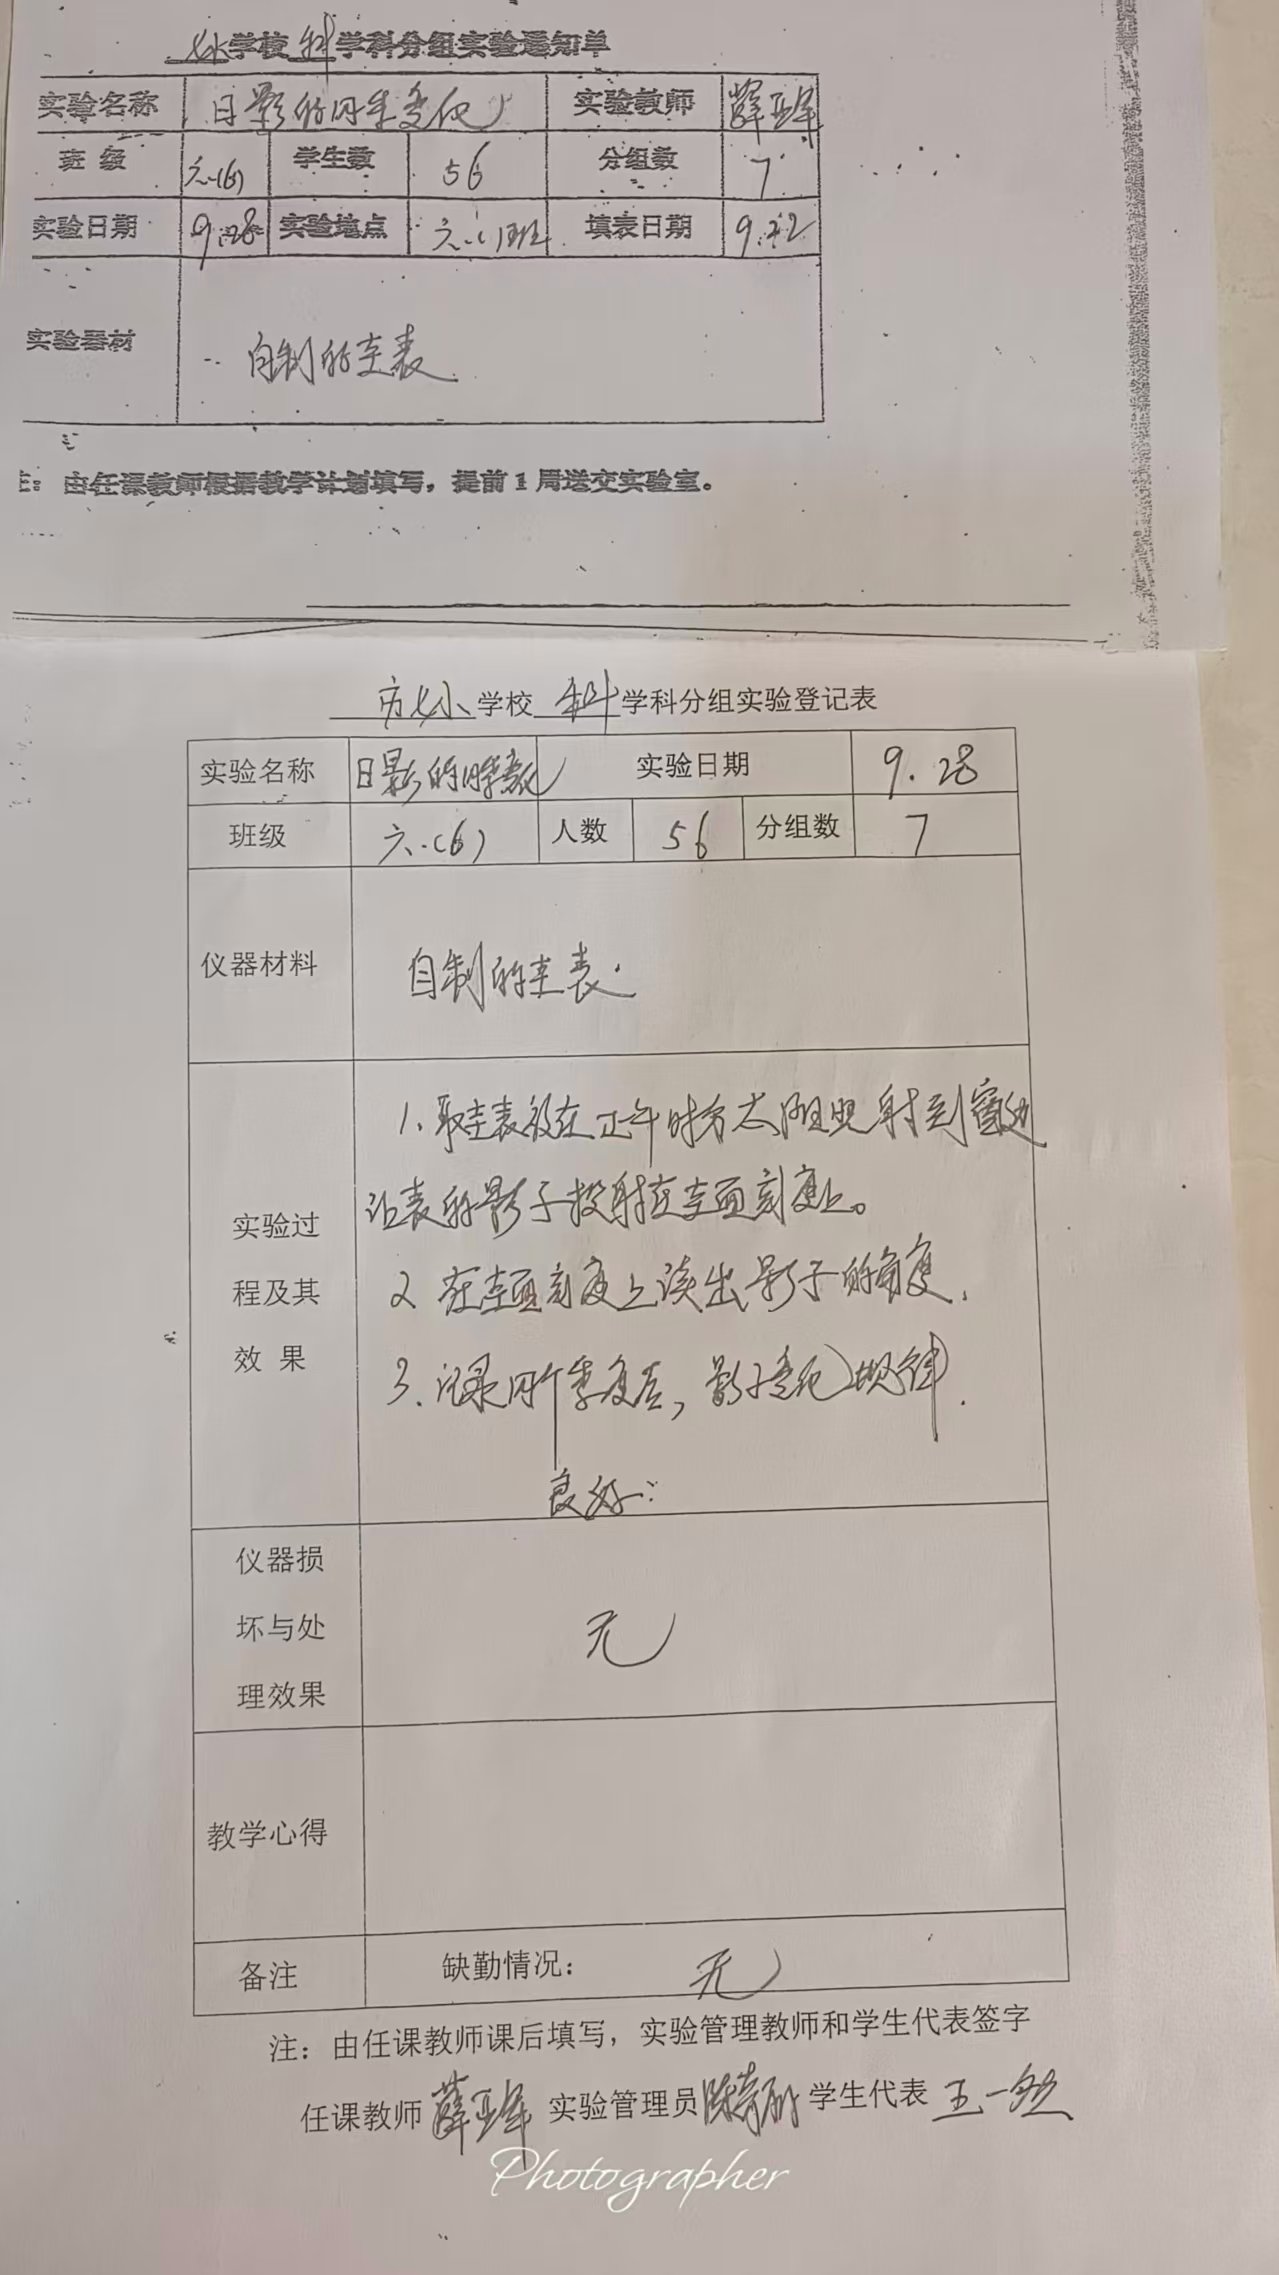 学校 科 学科分组实验通知单
实验名称 日影的四季变化 实验教师 薛亚军
班 级 六.(6) 学生数 56 分组数 7
实验日期 9.28 实验地点 六.( )班 填表日期 9.22
实验器材 自制的圭表
注: 由任课教师根据教学计划填写，提前1周送交实验室。
市七小学校 科 学科分组实验登记表
实验名称 日影的四季变化 实验日期 9.28
班级 六.(6) 人数 56 分组数 7
仪器材料 自制的圭表.
实验过程及其效果
1. 取圭表放在正午时分太阳照射到窗边
让表的影子投射在圭面刻度上。
2 在圭面刻度上读出影子的角度.
3. 记录四个季度后, 影子变化规律.
良好.
仪器损坏与处理效果 无
教学心得
备注 缺勤情况: 无
注: 由任课教师课后填写，实验管理教师和学生代表签字
任课教师 薛亚军 实验管理员 学生代表 王一
Photographer